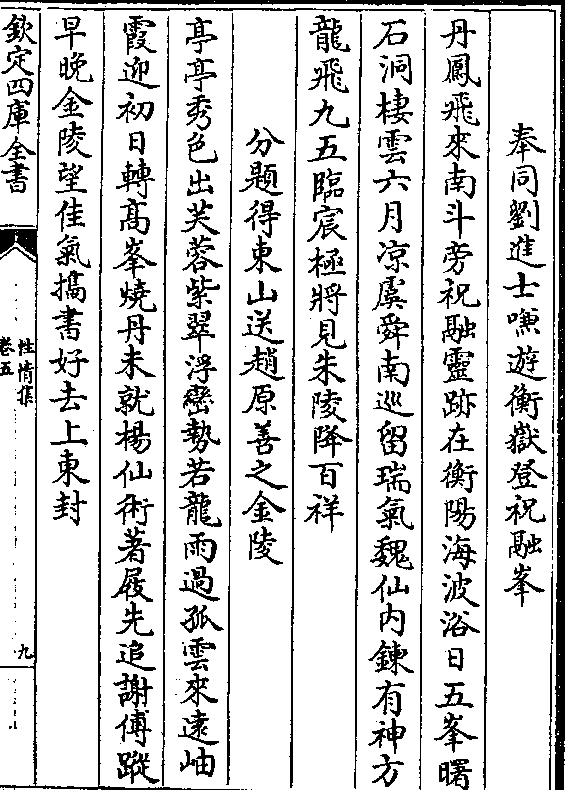 奉同劉進士㷼遊衡嶽登祝融峯
丹鳳飛來南斗旁祝融靈跡在衡陽海波浴日五峯曙
石洞棲雲六月凉虞舜南巡留瑞氣魏仙內鍊有神方
龍飛九五臨宸極將見朱陵降百祥
分題得東山送趙原善之金陵
亭亭秀色出芙蓉紫翠浮巒勢若龍雨過孤雲來遠岫
霞迎初日轉高峯燒丹未就楊仙術著屐先追謝傅蹤
早晚金陵望佳氣攜書好去上東封
欽定四庫全書
性情集
卷五
九